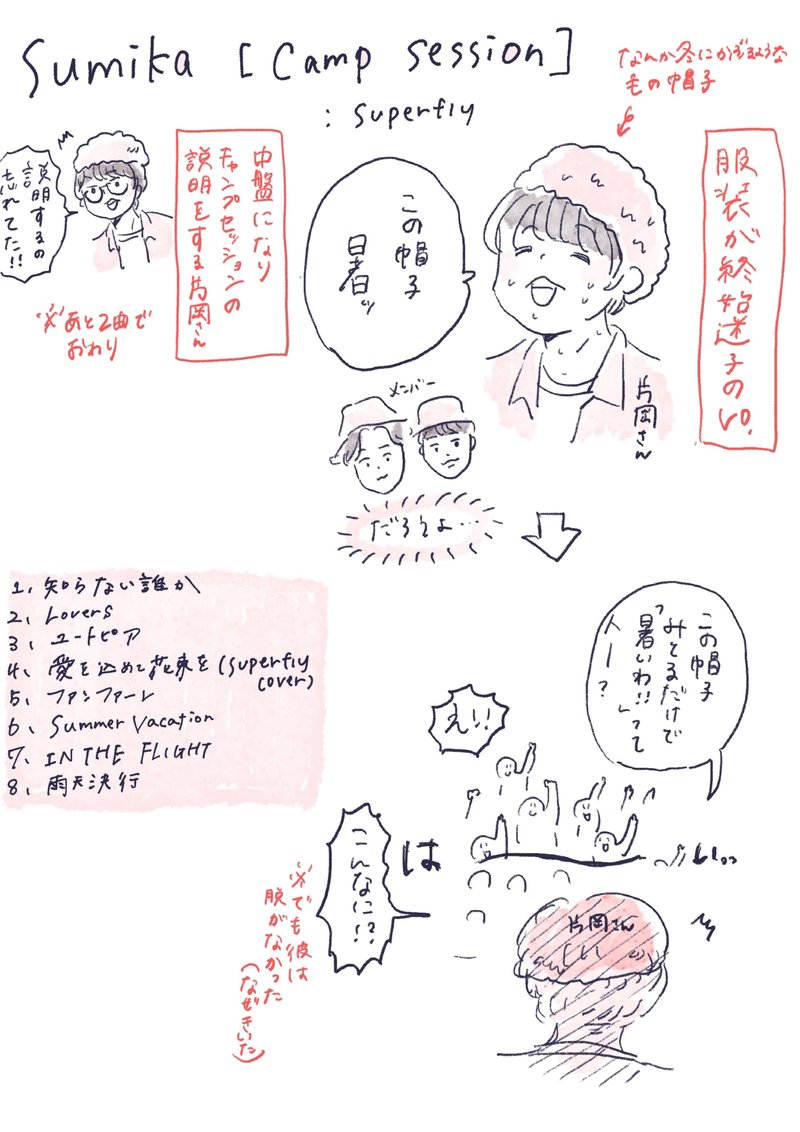 Sumika [Camp session]
: Superfly
なんか冬にかぶるような
毛の帽子
服装が終始迷子のVo.
この帽子
暑ッ
片岡さん
中盤になり
キャンプセッションの
説明をする片岡さん
説明するの
忘れてた!!
※あと2曲で
おわり
メンバー
だろうよ…
1、知らない誰か
2、Lovers
3、ユートピア
4、愛を込めて花束を(Superfly
cover)
5、ファンファーレ
6、Summer Vacation
7、IN THE FLIGHT
8、雨天決行
この帽子
「みてるだけで
暑いわ!!」って
人ー?
え!!
は
こんなに!?
片岡さん
※でも彼は
脱がなかった
(なぜきいた)